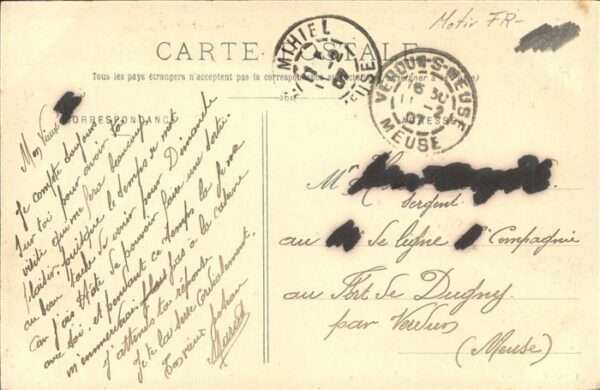 Motif FR-
CARTE POSTALE
Tous les pays étrangers n'acceptent pas la correspondance au
CORRESPONDANCE
ADRESSE
MIHIEL
VERDUN-S-MEUSE
16 30
11-2
07
MEUSE
Mon Vieux
Je compte toujours
sur toi pour avoir ta
visite qui me fera beaucoup
plaisir, puisque le temps se met
au beau tâche de venir pour Dimanche
car j'ai hâte de pouvoir faire une sortie
avec toi, et pendant ce temps là je ne
m'ennuierai pas à la caserne
J'attends ta réponse
Je te la serre cordialement.
Ton vieux
Mr
Sergent
au de ligne Compagnie
au Fort de Dugny
par Verdun
(Meuse)